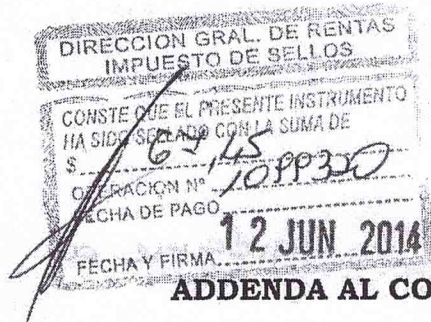 DIRECCION GRAL. DE RENTAS
IMPUESTO DE SELLOS
CONSTE QUE EL PRESENTE INSTRUMENTO
HA SIDO SELLADO CON LA SUMA DE
$
OPERACION Nº
FECHA DE PAGO
12 JUN 2014
FECHA Y FIRMA
ADDENDA AL CO